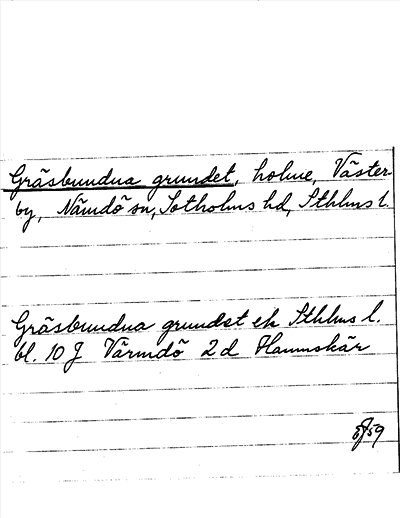 Gräsbundna grundet, holme, Väster-
by, Nämdö sn, Sotholms hd, Sthlms l.
Gräsbundna grundet ek Sthlms l.
bl. 10 J Värmdö 2 d Hamnskär
59